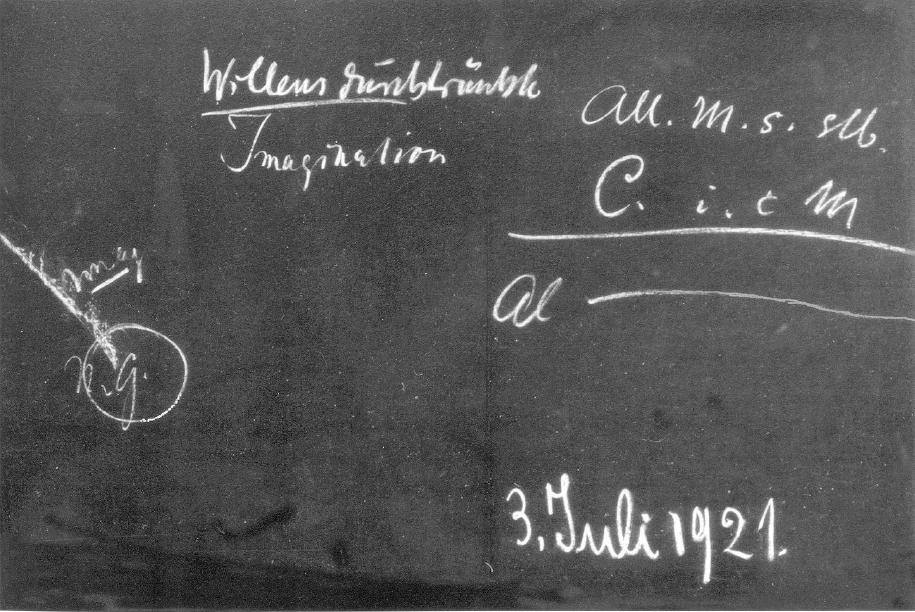 Willens durchtränkte
Imagination
All. M. s. stb.
C. i. e M
Al
Imag
N. G.
3. Juli 1921.